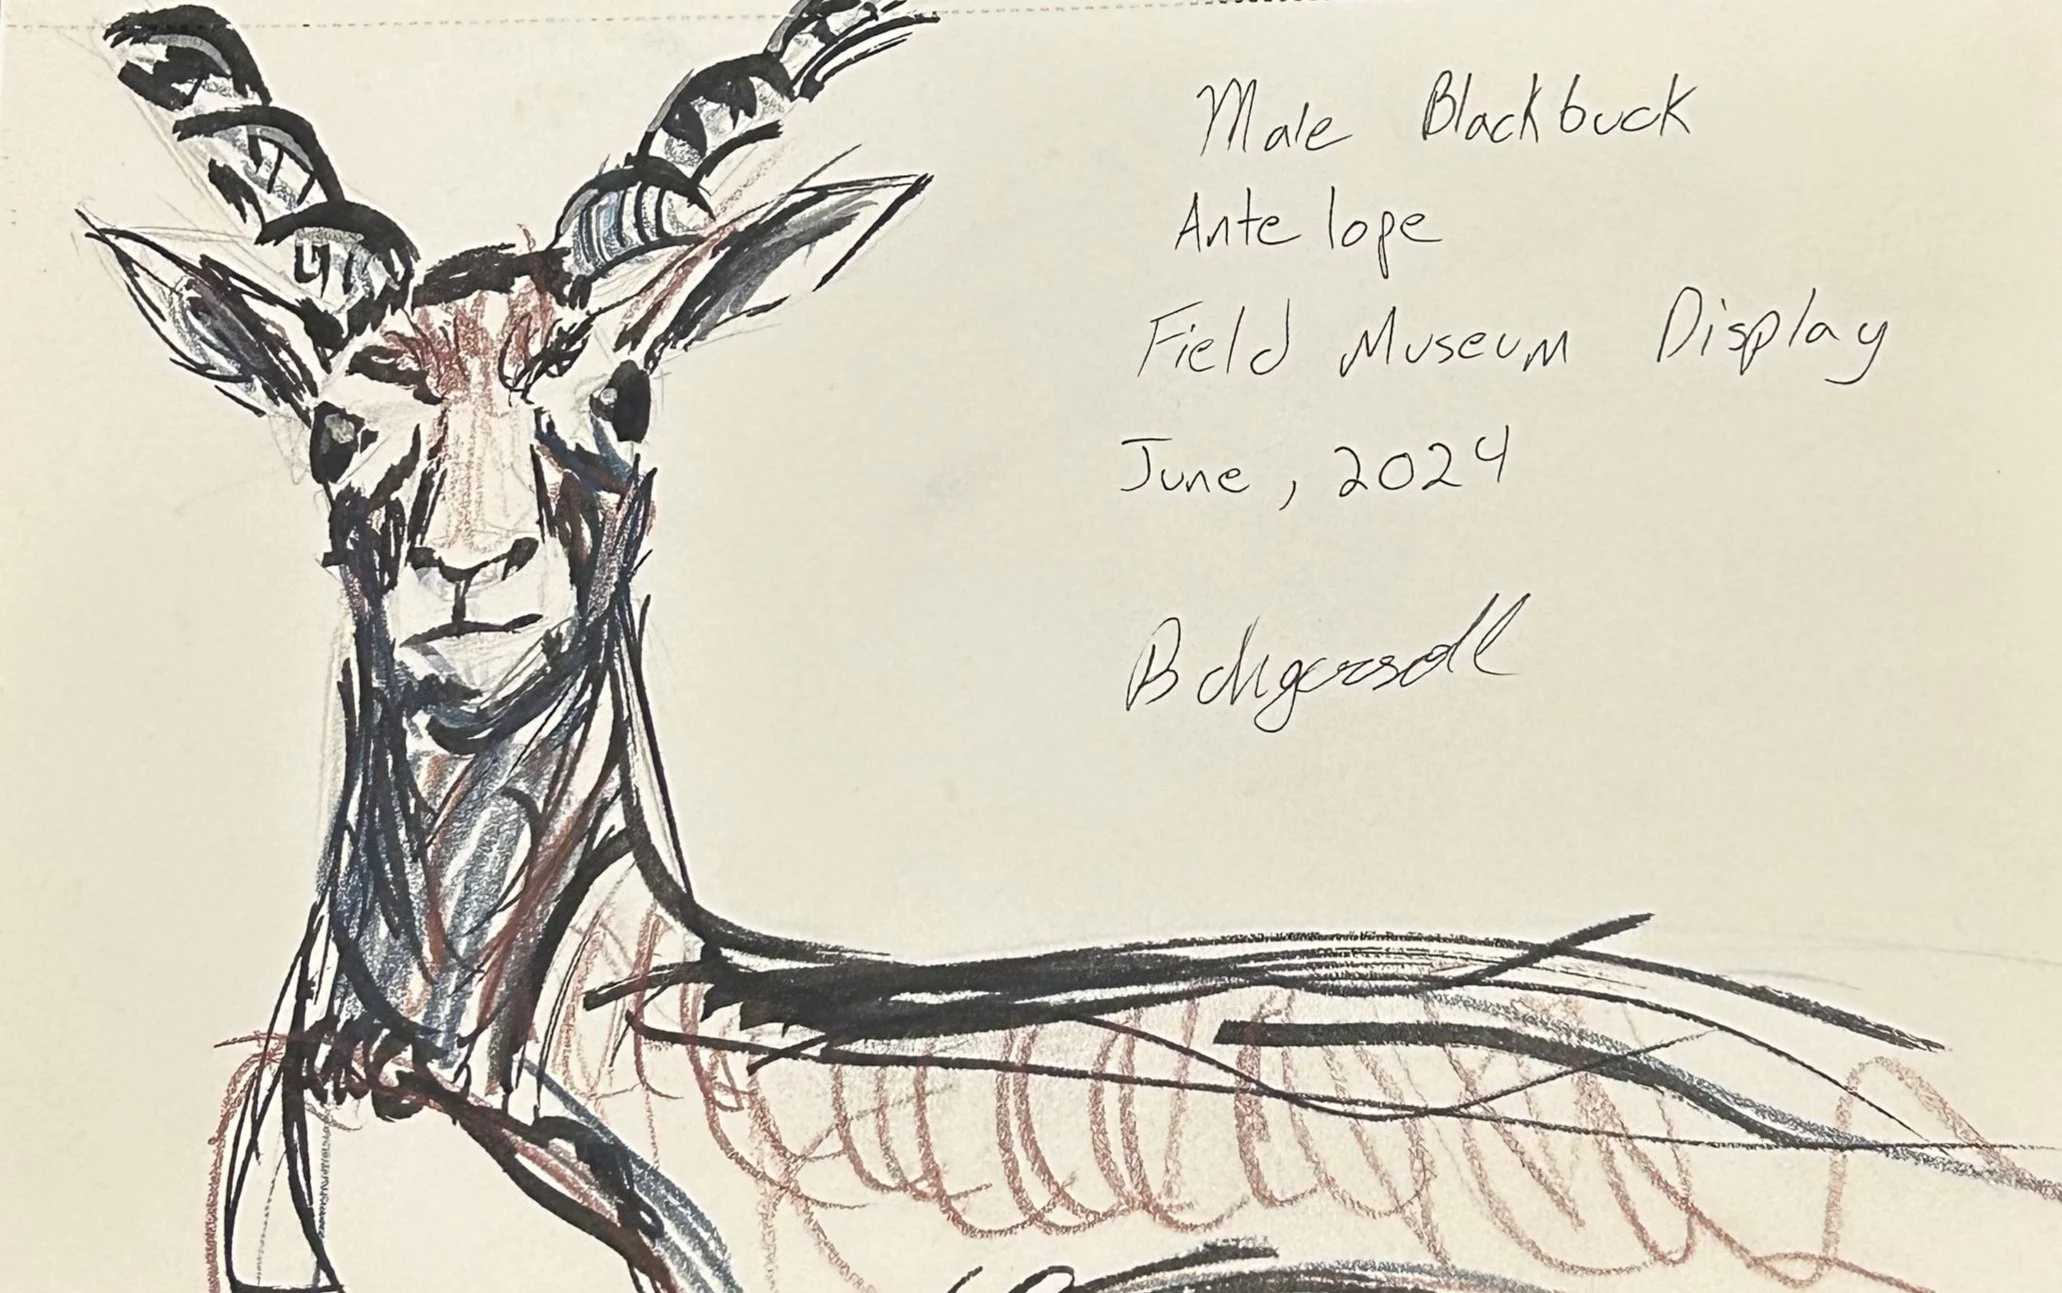 Male Blackbuck
Antelope
Field Museum Display
June, 2024